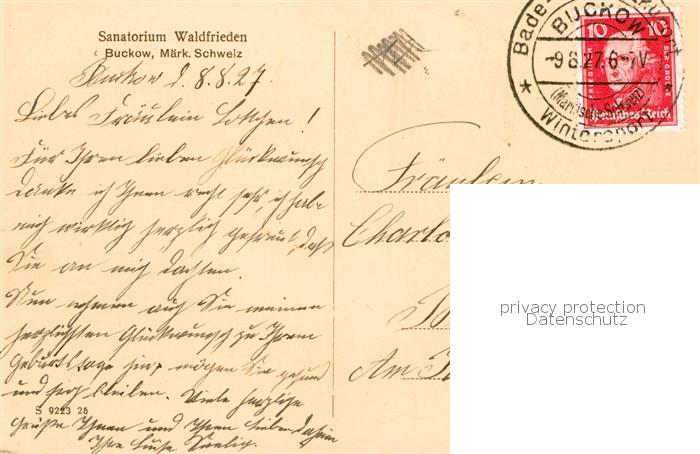 Sanatorium Waldfrieden
Buckow, Märk. Schweiz
Buckow d. 8.8.27.
Liebes Fräulein Lottchen!
Für Ihren lieben Glückwunsch
danke ich Ihnen recht sehr, ich habe
mich wirklich herzlich gefreut, daß
Sie an mich dachten.
Nun nehmen auch Sie meinen
herzlichsten Glückwunsch zu Ihrem
Geburtstage hin, mögen Sie gesund
und froh bleiben. Viele herzliche
Grüße Ihnen und Ihren Lieben daheim
Ihre
S 9223 26
Fräulein
Charlo
Am
BUCKOW
-9.8.27.6-7V.
(Märkische Schweiz)
Wintersport
10 10
FRIEDRICH DER GROSSE
Deutsches Reich
privacy protection
Datenschutz